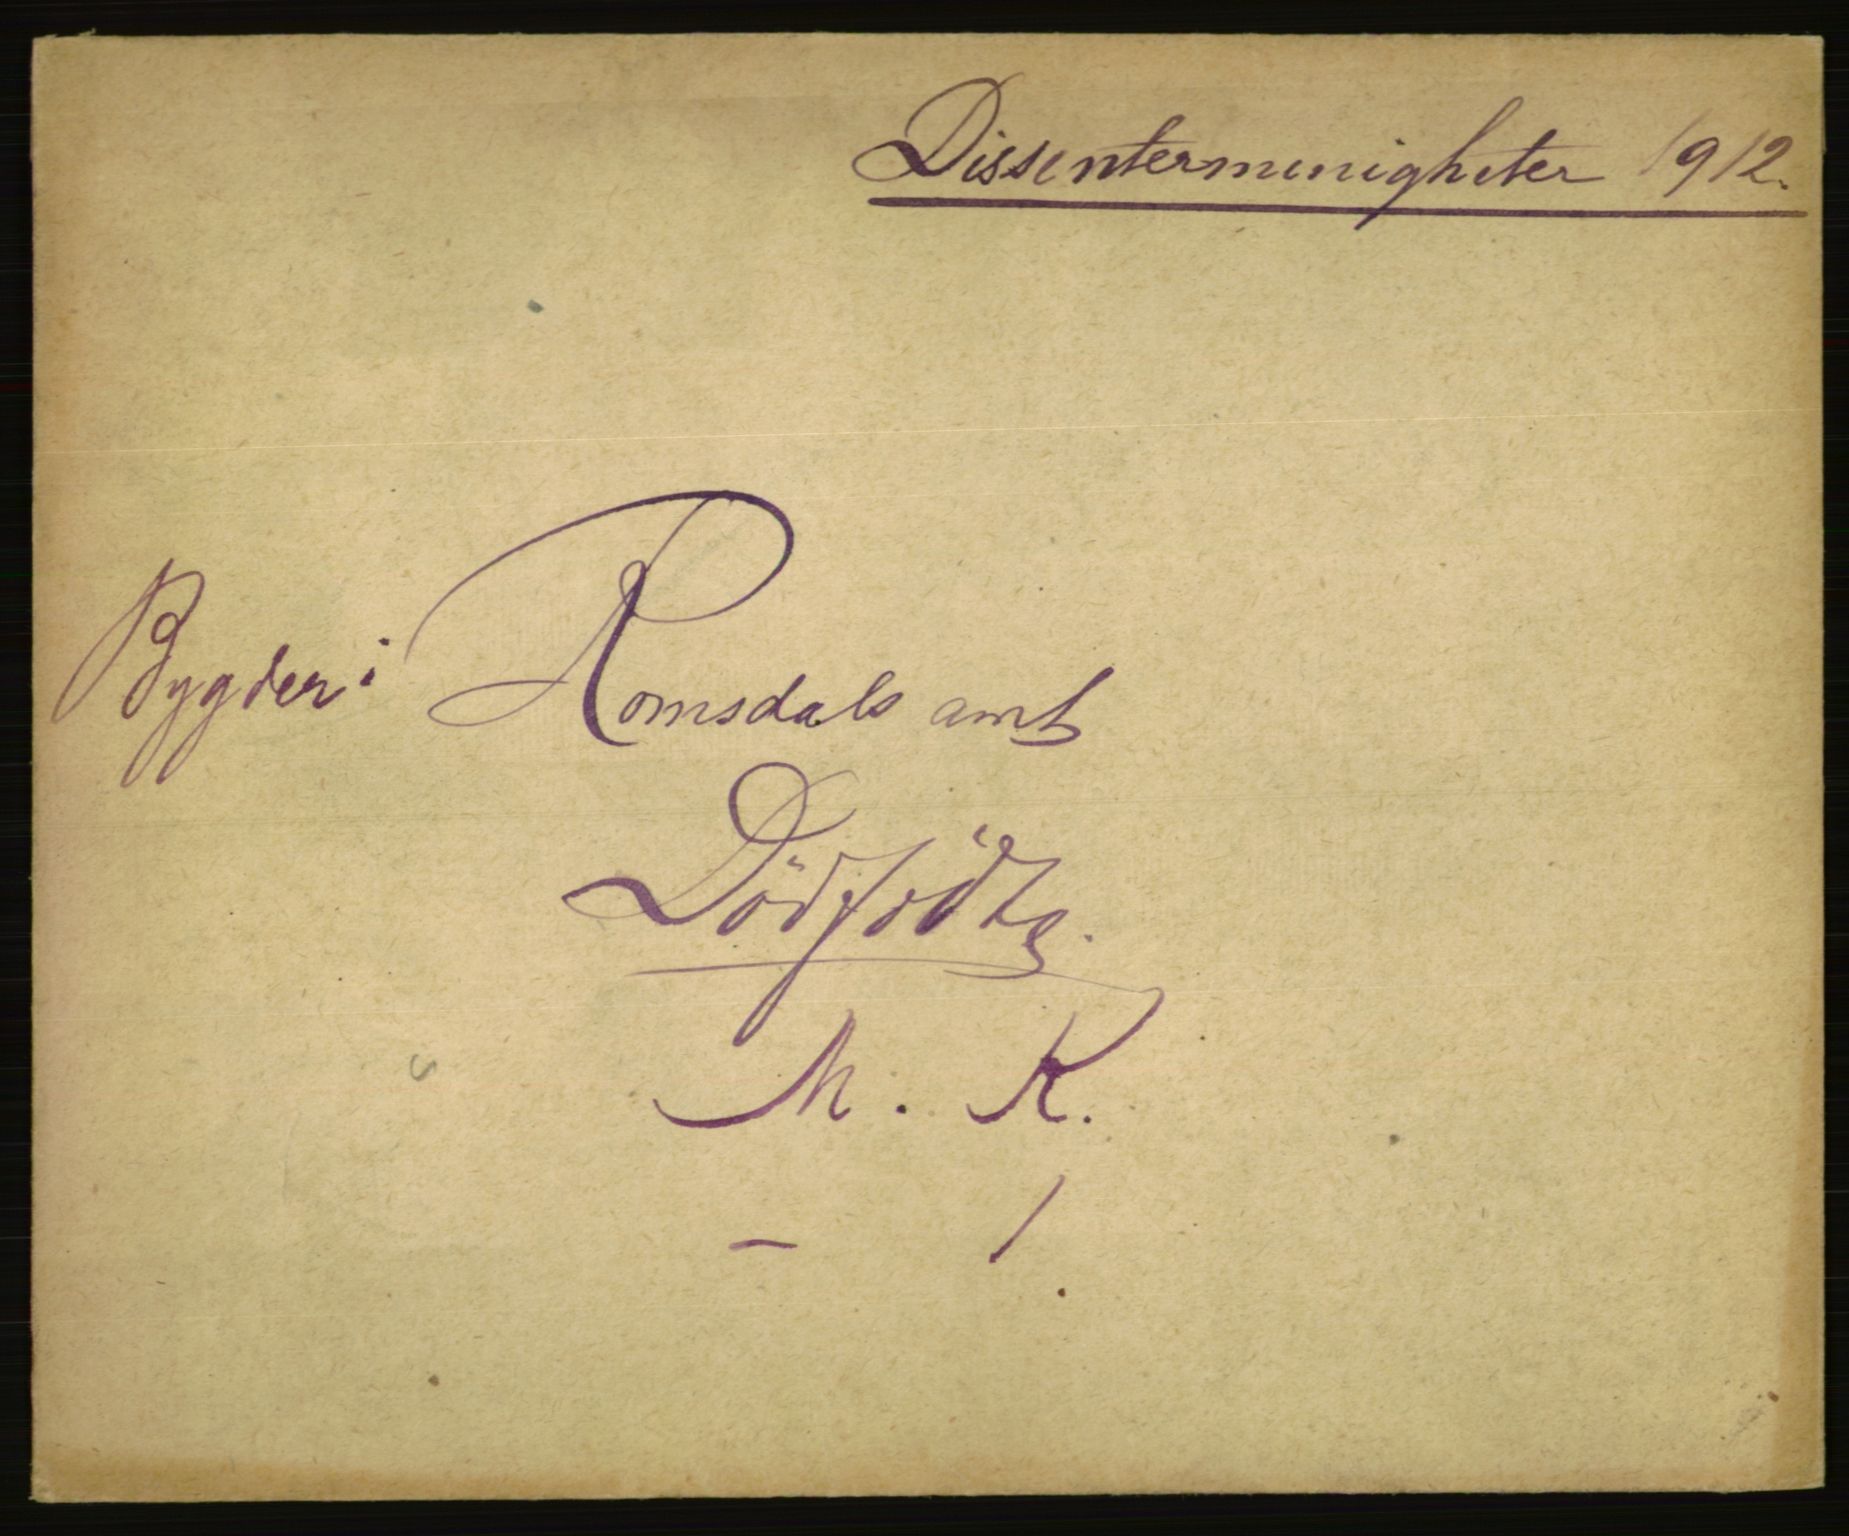 Dissentermenigheter 1912.
Bygder i Romsdals amt
Dödfödte.
M. K.
– 1